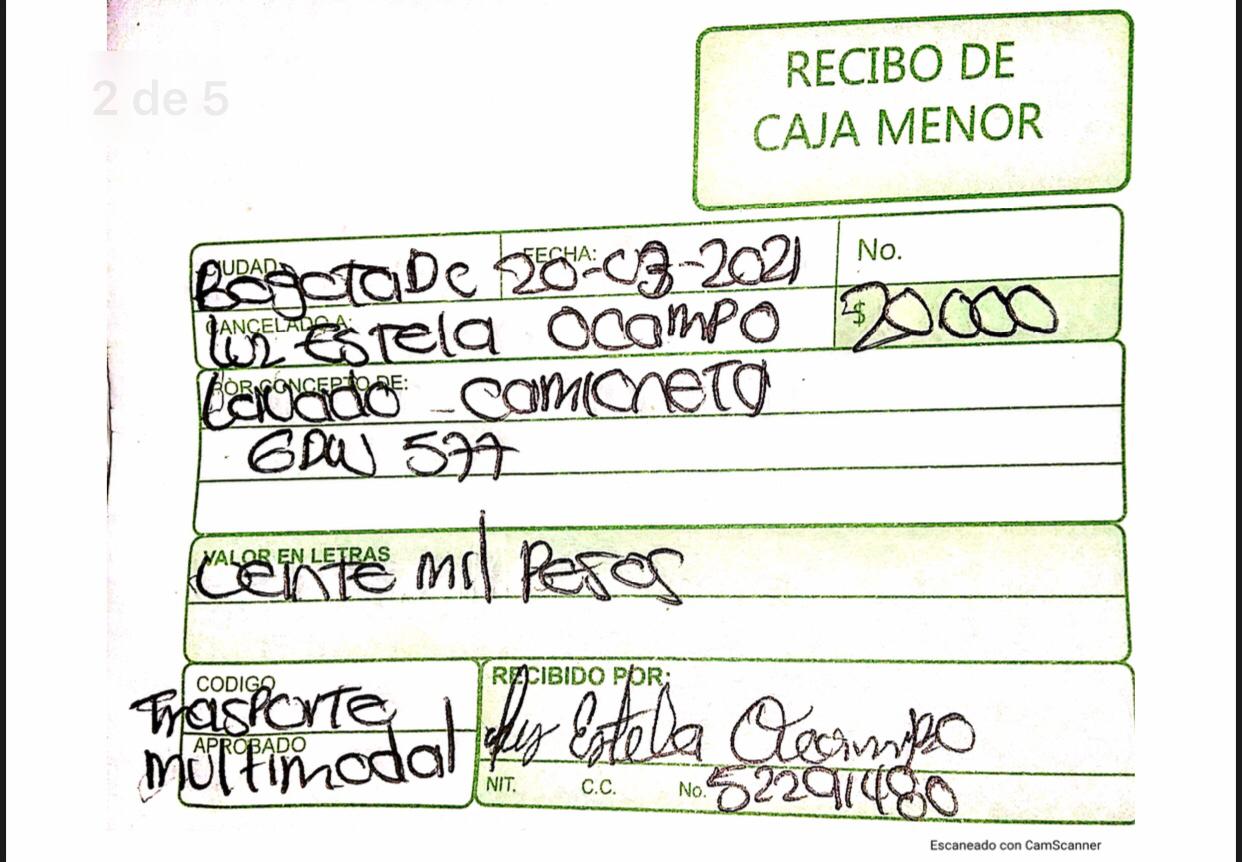 2 de 5
RECIBO DE
CAJA MENOR
CIUDAD: Bogota Dc
FECHA: 20-03-2021
No.
CANCELADO A: Luz Estela Ocampo
$ 20000
POR CONCEPTO DE: Lavado - camioneta
GDW 577
VALOR EN LETRAS
Veinte mil Pesos
CODIGO
Trasporte
APROBADO
multimodal
RECIBIDO POR:
Luz Estela Ocampo
NIT. C.C. No. 52291480
Escaneado con CamScanner